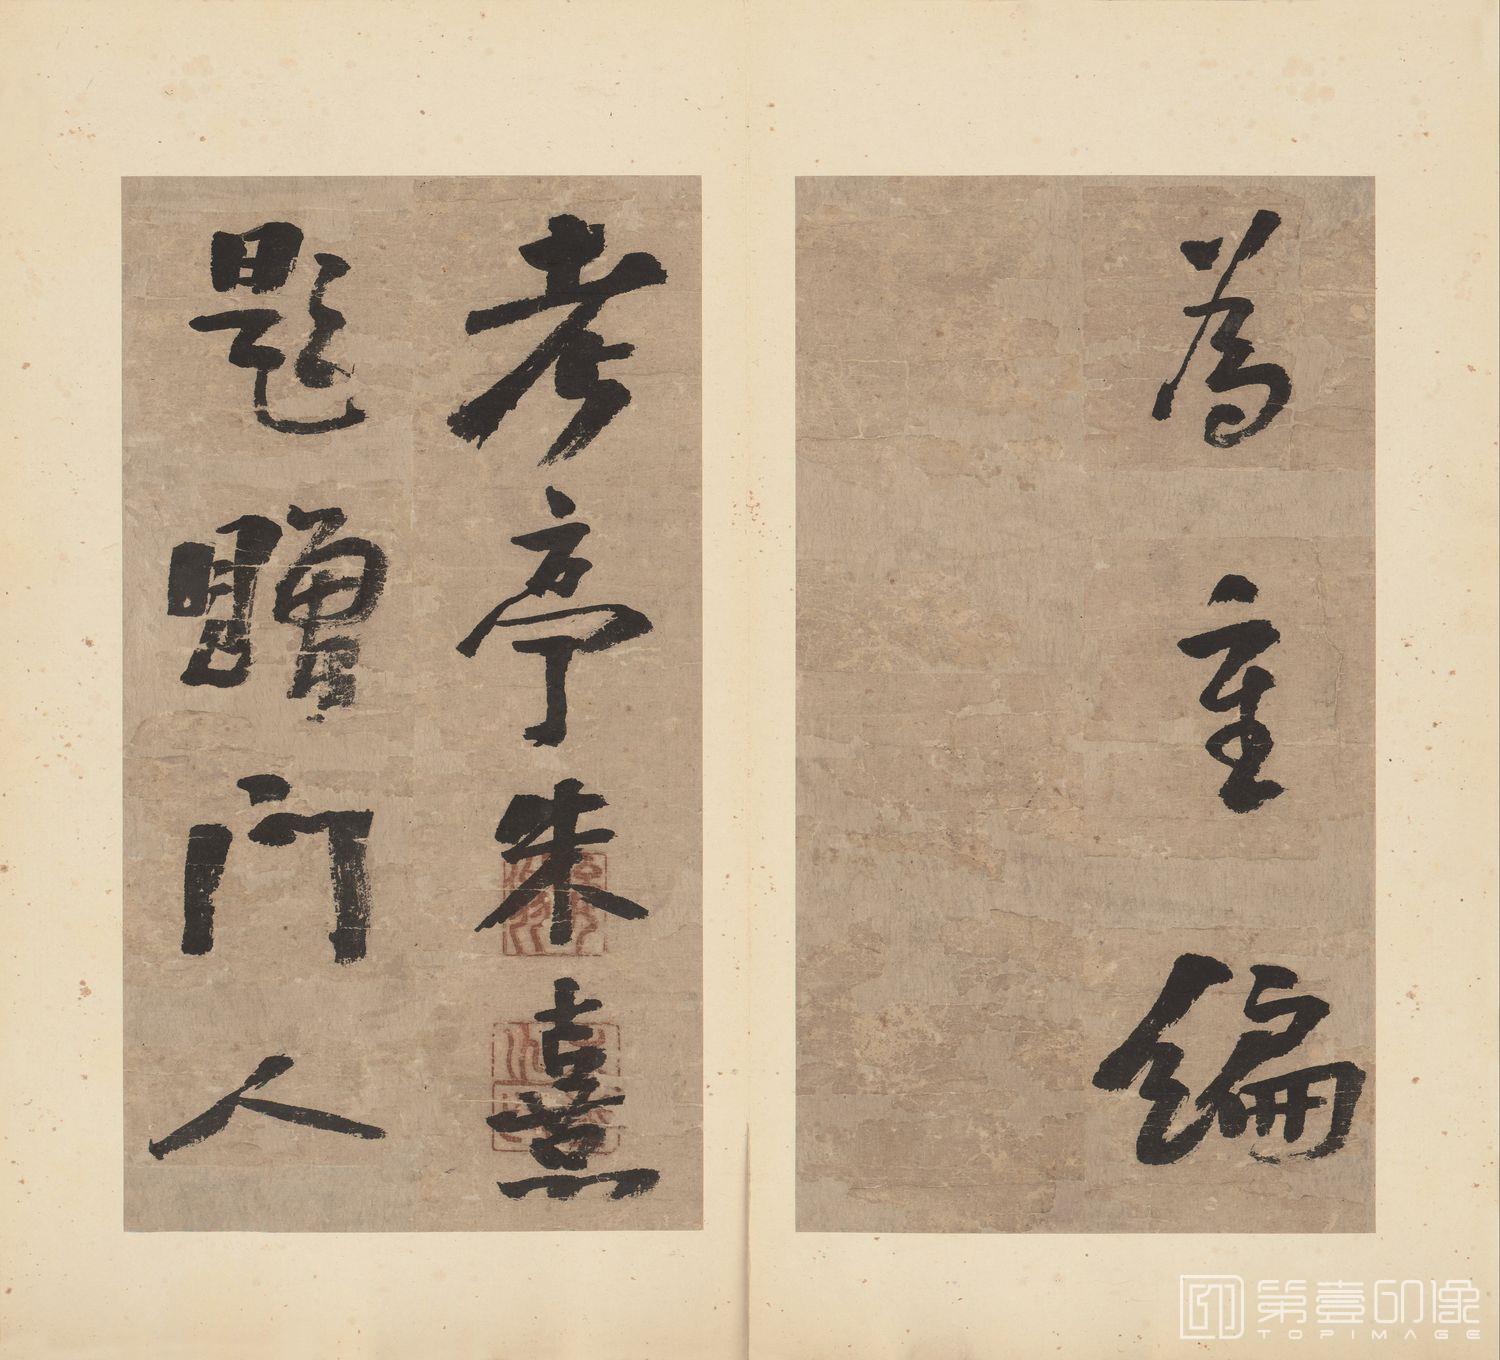 為
編
考亭朱熹
題贈門人
第壹印像
TOPIMAGE